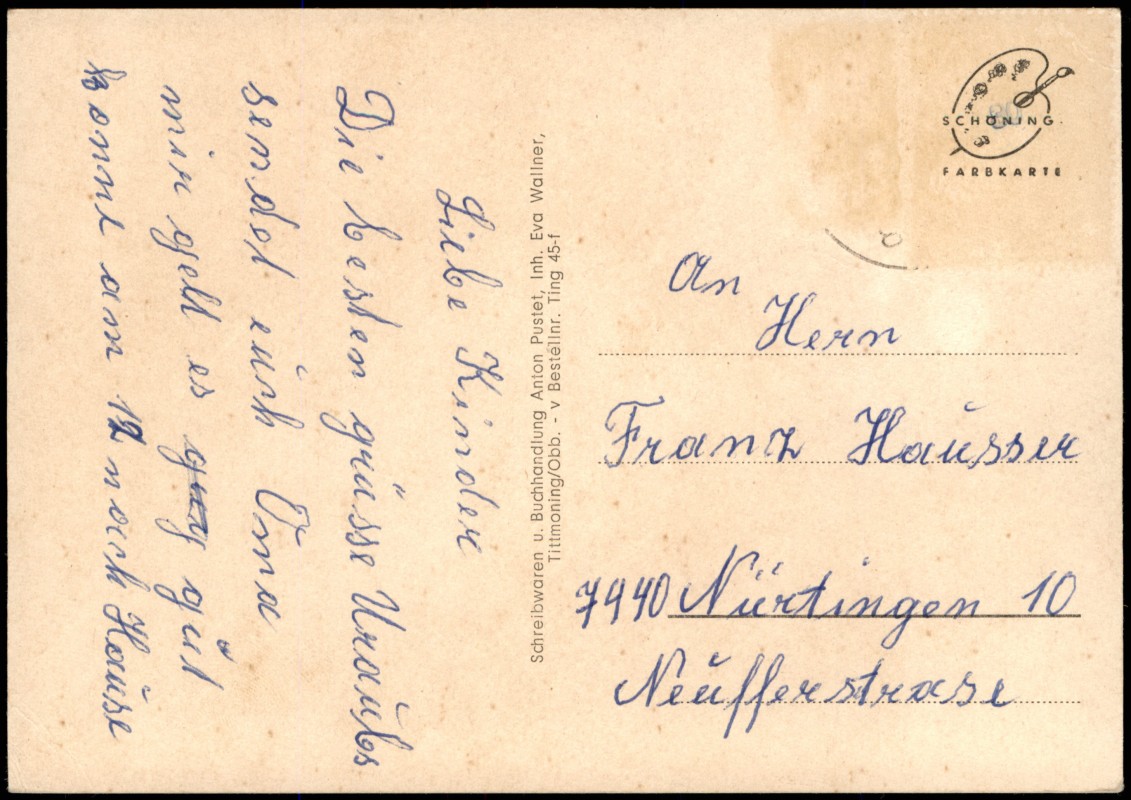 Liebe Kinder
Die besten grüsse Uraubs
sendet euch Oma
mir geht es gut
komme am 12 nach Hause
Schreibwaren u. Buchhandlung Anton Pustet, Inh. Eva Wallner,
Tittmoning/Obb. - v Bestellnr. Ting 45-f
SCHÖNING
FARBKARTE
An
Hern
Franz Hausser
7440 Nürtingen 10
Neufferstrase